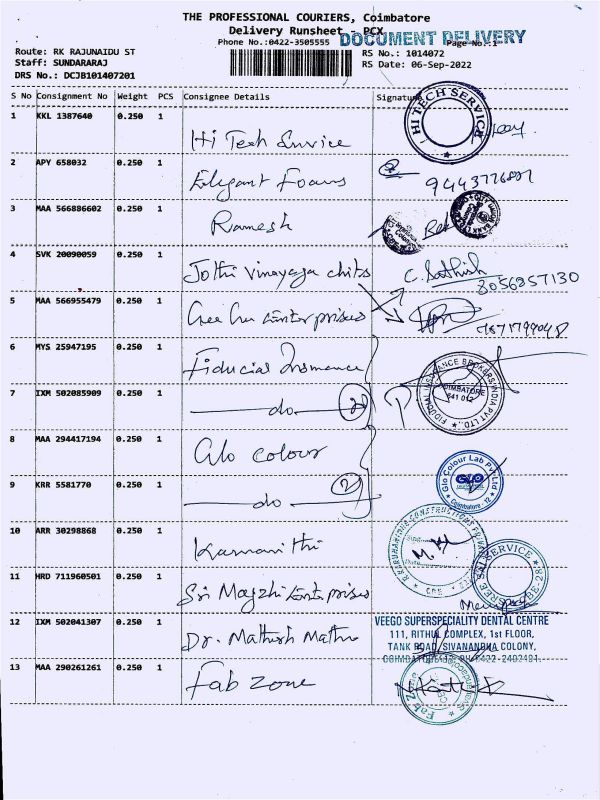 THE PROFESSIONAL COURIERS, Coimbatore
Delivery Runsheet - PCX
Phone No.:0422-3505555
DOCUMENT DELIVERY
Page No.:1
Route: RK RAJUNAIDU ST
RS No.: 1014072
Staff: SUNDARARAJ
RS Date: 06-Sep-2022
DRS No.: DCJB101407201
S No Consignment No Weight PCS Consignee Details Signature
1 KKL 1387640 0.250 1 Hi Tech Service
HI TECH SERVICE
2 APY 658032 0.250 1 Elegant Foams
3 MAA 566886602 0.250 1 Ramesh
4 SVK 20090059 0.250 1 Jothi Vinayaga chits C. Sathish
8056857130
5 MAA 566955479 0.250 1 Enterprises
6 MYS 25947195 0.250 1 Fiducial Insurance
FIDUCIAL INSURANCE BROKERS INDIA PVT LTD.,
COIMBATORE
641 012
7 IXM 502085909 0.250 1 do
8 MAA 294417194 0.250 1 Glo colour
Glo Colour Lab Pvt Ltd
GLO
Coimbatore. 12
9 KRR 5581770 0.250 1 do 2
10 ARR 30298868 0.250 1 Karnanithi
11 HRD 711960501 0.250 1 Sri Enterprises
SREE SAI SERVICE
12 IXM 502041307 0.250 1 Dr. Mathesh
VEEGO SUPERSPECIALITY DENTAL CENTRE
111, RITHUL COMPLEX, 1st FLOOR,
TANK ROAD, SIVANANDHA COLONY,
13 MAA 290261261 0.250 1 Fab Zone
Fab Zone